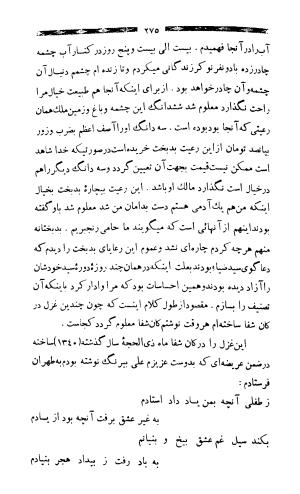 ۲۷۵
آب را در آنجا فهمیدم . بیست الی بیست و پنج روز در کنار آب چشمه
چادر زده با دو نفر نوکر زندگانی میکردم و تا زنده ام چشم دنبال آن
چشمه و آن چادر خواهد بود . از برای اینکه آنجا هم طبیعت خیال مرا
راحت نگذارد معلوم شد ششدانگ این چشمه و باغ و زمین ملك همان
رعیتی که آنجا بود بوده است . سه دانگ او را آصف اعظم بضرب وزور
بپانصد تومان از این رعیت بدبخت خریده است در صورتیکه خدا شاهد
است ممکن نیست قیمت بجهت آن تعیین گردد و سه دانگ دیگر را هم
در خیال است نگذارد مالك او باشد . این رعیت بیچاره بدبخت بخیال
اینکه من هم یك آدمی هستم دست بدامان من شد معلوم شد باو گفته
بودند اینهم از آنهائی است که میگویند ما حامی رنجبریم . بدبختانه
منهم هر چه کردم چاره‌ای نشد و عموم این رعایای بدبخت را دیدم که
دعا گوی سید ضیاء بودند بعلت اینکه در همان چند روزهٔ دورهٔ سید خودشان
را آزاد دیده بودند و همین احساسات بود که مرا وادار کرد باینکه آن
تصنیف را بسازم . مقصود از طول کلام اینست که چون چندین غزل در
کان شفا ساخته‌ام هر وقت نوشتم کان شفا معلوم گردد کجاست .
این غزل را در کان شفا ماه ذی الحجهٔ سال گذشته (۱۳۴۰) ساخته
در ضمن عریضه‌ای که بدوست عزیزم علی بیرنگ نوشته بودم به طهران
فرستادم :
ز طفلی آنچه بمن یاد داد استادم
به غیر عشق برفت آنچه بود از یادم
بکند سیل غم عشق بیخ و بنیانم
به باد رفت ز بیداد هجر بنیادم